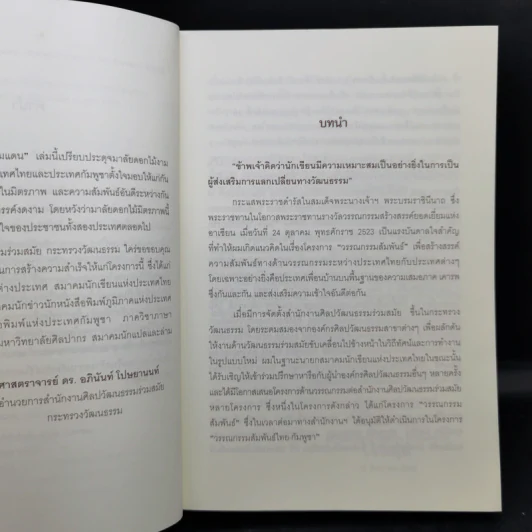 มแดน” เล่มนี้เปรียบประดุจมาลัยดอกไม้งาม
เทศไทยและประเทศกัมพูชาตั้งใจมอบให้แก่กัน
ในมิตรภาพ และความสัมพันธ์อันดีระหว่างกัน
รรค์งดงาม โดยหวังว่ามาลัยดอกไม้มิตรภาพนี้
ใจของประชาชนทั้งสองประเทศตลอดไป
ร่วมสมัย กระทรวงวัฒนธรรม ใคร่ขอขอบคุณ
นการสร้างความสำเร็จให้แก่โครงการนี้ ซึ่งได้แก่
ต่างประเทศ สมาคมนักเขียนแห่งประเทศไทย
มาคมนักข่าวนักหนังสือพิมพ์ภูมิภาคแห่งประเทศ
อพิมพ์แห่งประเทศกัมพูชา ภาควิชาภาษา
มหาวิทยาลัยศิลปากร สมาคมนักแปลและล่าม
ศาสตราจารย์ ดร. อภินันท์ โปษยานนท์
อำนวยการสำนักงานศิลปวัฒนธรรมร่วมสมัย
กระทรวงวัฒนธรรม
บทนำ
“ข้าพเจ้าคิดว่านักเขียนมีความเหมาะสมเป็นอย่างยิ่งในการเป็น
ผู้ส่งเสริมการแลกเปลี่ยนทางวัฒนธรรม”
กระแสพระราชดำรัสในสมเด็จพระนางเจ้าฯ พระบรมราชินีนาถ ซึ่ง
พระราชทานในโอกาสพระราชทานรางวัลวรรณกรรมสร้างสรรค์ยอดเยี่ยมแห่ง
อาเซียน เมื่อวันที่ 24 ตุลาคม พุทธศักราช 2523 เป็นแรงบันดาลใจสำคัญ
ที่ทำให้ผมเกิดแนวคิดในเรื่องโครงการ “วรรณกรรมสัมพันธ์” เพื่อสร้างสรรค์
ความสัมพันธ์ทางด้านวรรณกรรมระหว่างประเทศไทยกับประเทศต่างๆ
โดยเฉพาะอย่างยิ่งคือประเทศเพื่อนบ้านบนพื้นฐานของความเสมอภาค เคารพ
ซึ่งกันและกัน และส่งเสริมความเข้าใจอันดีต่อกัน
เมื่อมีการจัดตั้งสำนักงานศิลปวัฒนธรรมร่วมสมัย ขึ้นในกระทรวง
วัฒนธรรม โดยระดมสมองจากองค์กรศิลปวัฒนธรรมสาขาต่างๆ เพื่อผลักดัน
ให้งานด้านวัฒนธรรมร่วมสมัยขับเคลื่อนไปข้างหน้าในวิถีทัศน์และการทำงาน
ในรูปแบบใหม่ ผมในฐานะนายกสมาคมนักเขียนแห่งประเทศไทยในขณะนั้น
ได้รับเชิญให้เข้าร่วมปรึกษาหารือกับผู้นำองค์กรศิลปวัฒนธรรมอื่นๆ หลายครั้ง
และได้มีโอกาสเสนอโครงการด้านวรรณกรรมต่อสำนักงานศิลปวัฒนธรรมร่วมสมัย
หลายโครงการ ซึ่งหนึ่งในโครงการดังกล่าว ได้แก่โครงการ “วรรณกรรม
สัมพันธ์” ซึ่งในเวลาต่อมาทางสำนักงานฯ ได้อนุมัติให้ดำเนินการในโครงการ
“วรรณกรรมสัมพันธ์ไทย-กัมพูชา”